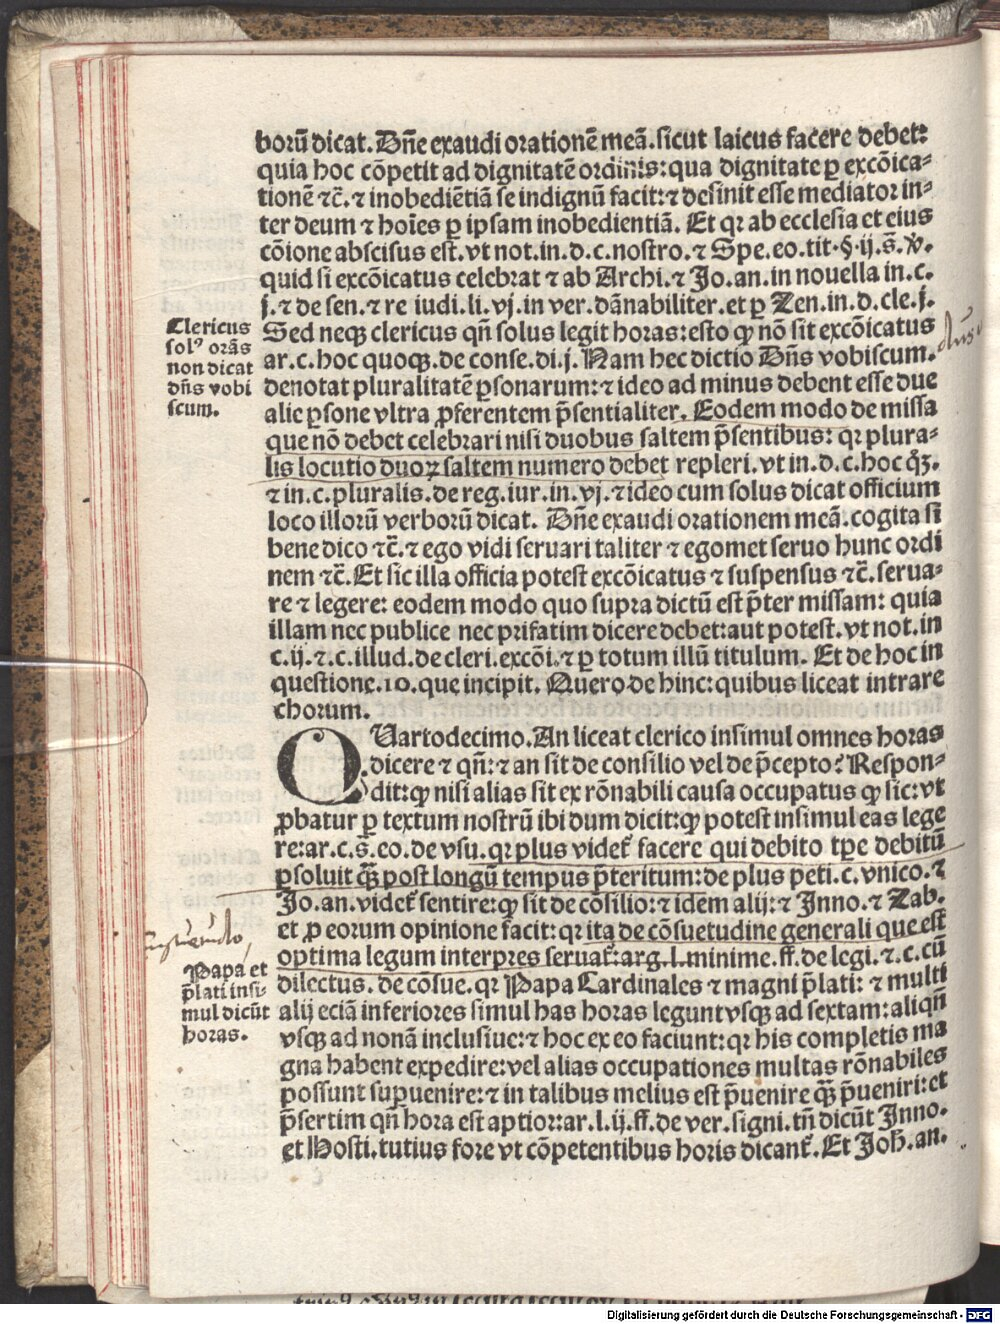 borū dicat. Dn̄e exaudi orationē meā. sicut laicus facere debet:
quia hoc cōpetit ad dignitatē ordinis: qua dignitate ꝑ excōica-
tionē ⁊c̄. ⁊ inobediētiā se indignū facit: ⁊ desinit esse mediator in-
ter deum ⁊ hoīes ꝑ ipsam inobedientiā. Et qꝛ ab ecclesia et eius
cōione abscisus est. vt not. in. d. c. nostro. ⁊ Spe. eo. tit. §. ij. s̄. v̄.
quid si excōicatus celebrat ⁊ ab Archi. ⁊ Jo. an. in nouella in. c.
j. ⁊ de sen. ⁊ re iudi. li. vj. in ver. dānabiliter. et ꝑ Zen. in. d. cle. j.
Sed neqꝫ clericus qn̄ solus legit horas: esto ꝙ nō sit excōicatus
ar. c. hoc quoqꝫ. de conse. di. j. Nam hec dictio Dn̄s vobiscum.
denotat pluralitatē ꝑsonarum: ⁊ ideo ad minus debent esse due
alie ꝑsone vltra ꝓferentem p̄sentialiter. Eodem modo de missa
que nō debet celebrari nisi duobus saltem p̄sentibus: qꝛ plura-
lis locutio duoꝝ saltem numero debet repleri. vt in. d. c. hoc q̊ꝫ.
⁊ in. c. pluralis. de reg. iur. in. vj. ⁊ ideo cum solus dicat officium
loco illorū verborū dicat. Dn̄e exaudi orationem meā. cogita si
bene dico ⁊c̄. ⁊ ego vidi seruari taliter ⁊ egomet seruo hunc ordi
nem ⁊c̄. Et sic illa officia potest excōicatus ⁊ suspensus ⁊c̄. serua-
re ⁊ legere: eodem modo quo supra dictū est p̄ter missam: quia
illam nec publice nec prifatim dicere debet: aut potest. vt not. in
c. ij. ⁊. c. illud. de cleri. excōi. ⁊ ꝑ totum illū titulum. Et de hoc in
questione. 10. que incipit. Quero de hinc: quibus liceat intrare
chorum.
QUartodecimo. An liceat clerico insimul omnes horas
dicere ⁊ qn̄: ⁊ an sit de consilio vel de p̄cepto? Respon-
dit: ꝙ nisi alias sit ex rōnabili causa occupatus ꝙ sic: vt
ꝓbatur ꝑ textum nostrū ibi dum dicit: ꝙ potest insimul eas lege
re: ar. c. s̄. eo. de vsu. qꝛ plus videt᷑ facere qui debito tꝑe debitū
ꝑsoluit qꝫ̄ post longū tempus p̄teritum: de plus peti. c. vnico. ⁊
Jo. an. videt᷑ sentire: ꝙ sit de cōsilio: ⁊ idem alij: ⁊ Inno. ⁊ Zab.
et ꝑ eorum opinione facit: qꝛ ita de cōsuetudine generali que est
optima legum interpres seruat᷑: arg. l. minime. ff. de legi. ⁊. c. cū
dilectus. de cōsue. qꝛ Papa Cardinales ⁊ magni p̄lati: ⁊ multi
alij eciā inferiores simul has horas legunt vsqꝫ ad sextam: aliqn̄
vsqꝫ ad nonā inclusiue: ⁊ hoc ex eo faciunt: qꝛ his completis ma
gna habent expedire: vel alias occupationes multas rōnabiles
possunt suꝑuenire: ⁊ in talibus melius est p̄uenire qꝫ̄ p̄ueniri: et
p̄sertim qn̄ hora est aptior: ar. l. ij. ff. de ver. signi. tn̄ dicūt Inno.
et Hosti. tutius fore vt cōpetentibus horis dicant᷑. Et Joh. an.
Clericus
solꝰ orās
non dicat
dn̄s vobi
scum.
Papa et
p̄lati insi-
mul dicūt
horas.
Digitalisierung gefördert durch die Deutsche Forschungsgemeinschaft - DFG